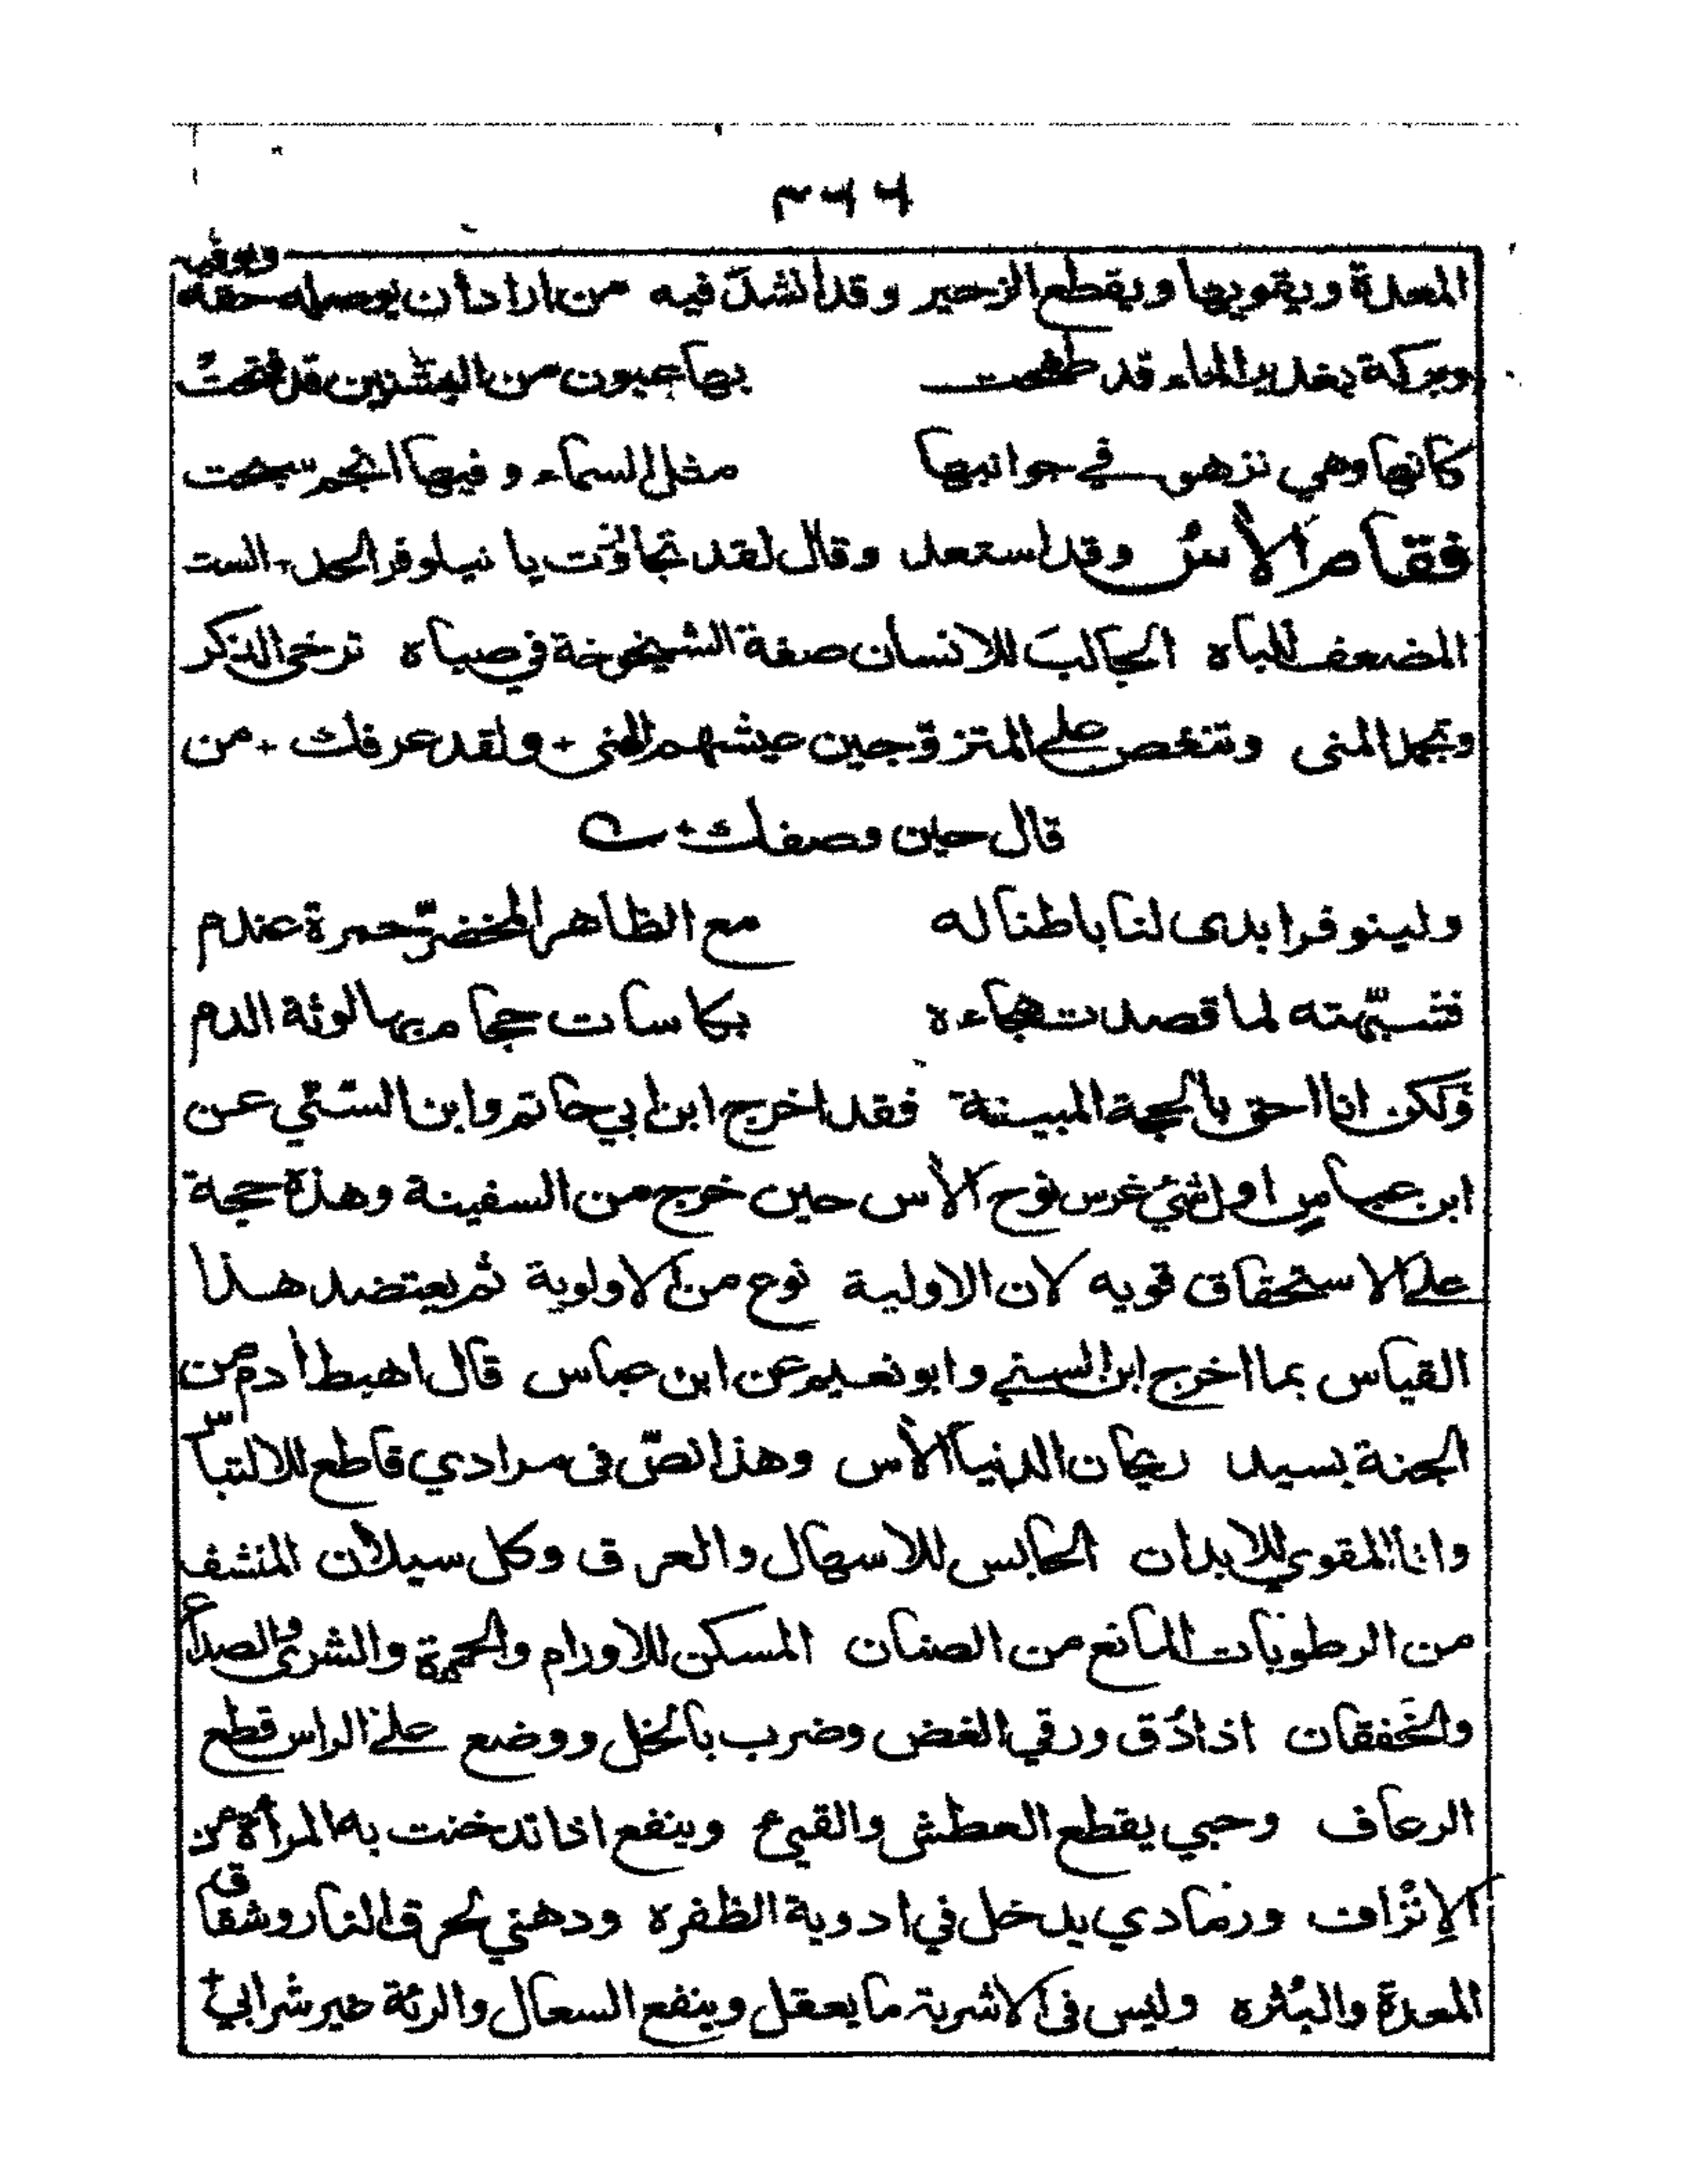 ٣٦٦
المعدة ويقويها ويقطع الزحير وقد أنشد فيه من اراد أن يوصله حقه ويوفيه
وبركة بغدير الماء قد طفحت بها عيون من البشنين قد فتحت
كانها وهي تزهو في جوانبها مثل السماء وفيها انجم سبحت
فقام الأس وقد استعد وقال لقد تجاوزت يا نيلوفر الحد الست
المضعف للباه الجالب للانسان صفة الشيخوخة في صباه ترخي الذكر
وتجمد المنى وتنغص على المتزوجين عيشهم الهني ولقد عرفك من
قال حين وصفك
ولينوفر ابدى لنا باطنا له مع الظاهر المخضر حمرة عندم
فشبهته لما قصدت هجاءه بكاسات حجام بها لوثة الدم
ولكن انا احق بالحجة المبينة فقد اخرج ابن ابي حاتم وابن السني عن
ابن عباس اول شئ غرس نوح الأس حين خرج من السفينة وهذة حجة
على الاستحقاق قويه لان الاولية نوع من الاولوية ثم يعتضد هذا
القياس بما اخرج ابن السني وابو نعيم عن ابن عباس قال اهبط أدم من
الجنة بسيد ريحان الدنيا الأس وهذا نص فى مرادي قاطع للالتباس
وانا المقوي للابدان الحابس للاسهال والعرق وكل سيلان المنشف
من الرطوبات المانع من الصنان المسكن للاورام والحمرة والشرى والصداع
والخفقان اذا دق ورقي الغض وضرب بالخل ووضع على الراس قطع
الرعاف وحبي يقطع العطش والقيء وينفع اذا تدخنت به المرأة من
الإنزاف ورمادي يدخل في ادوية الظفره ودهني لحرق النار وشقاق
المعدة والبثره وليس فى الاشربة ما يعقل وينفع السعال والرئة خير شرابي